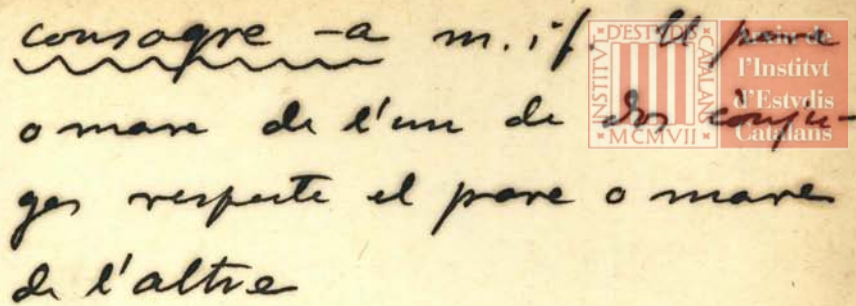 consogre -a m. i f. El pare
o mare de l'un de dos cònju-
ges respecte el pare o mare
de l'altre
INSTITVT D'ESTVDIS CATALANS
MCMVII
Arxiu de
l'Institvt
d'Estvdis
Catalans